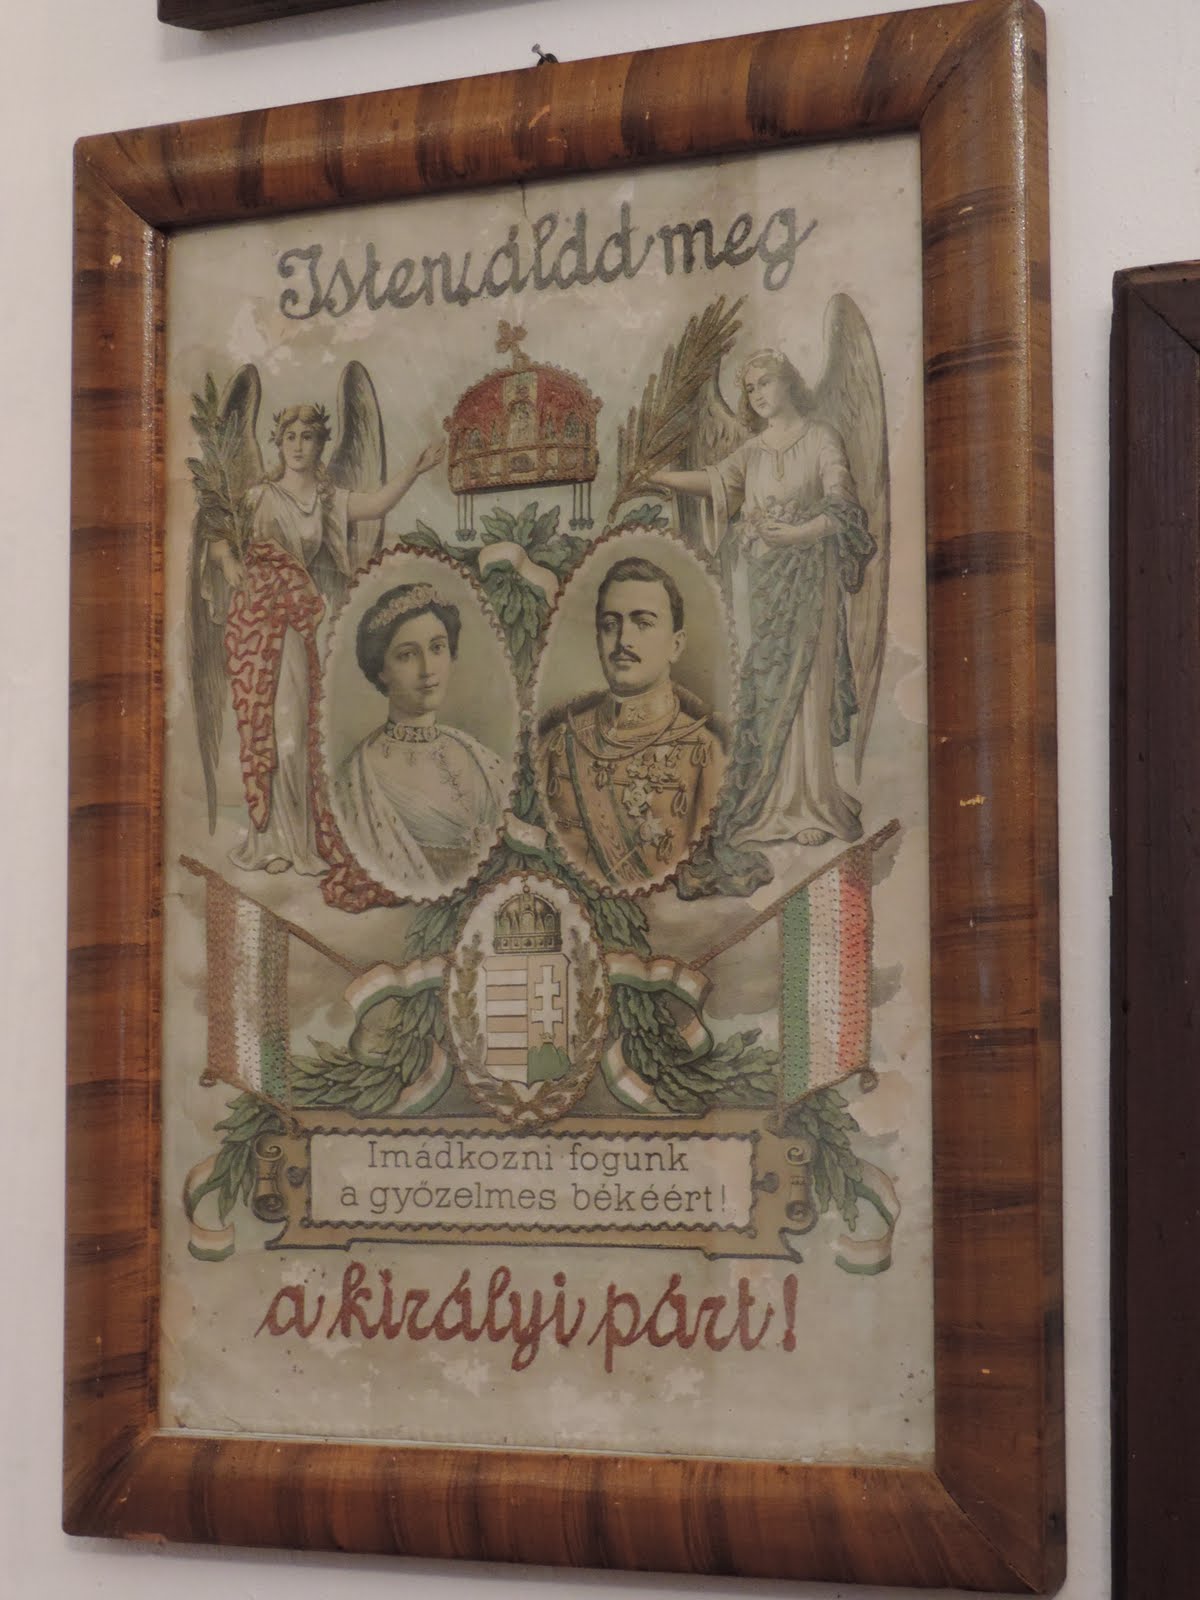 Isten, áldd meg
Imádkozni fogunk
a győzelmes békéért!
a királyi párt!